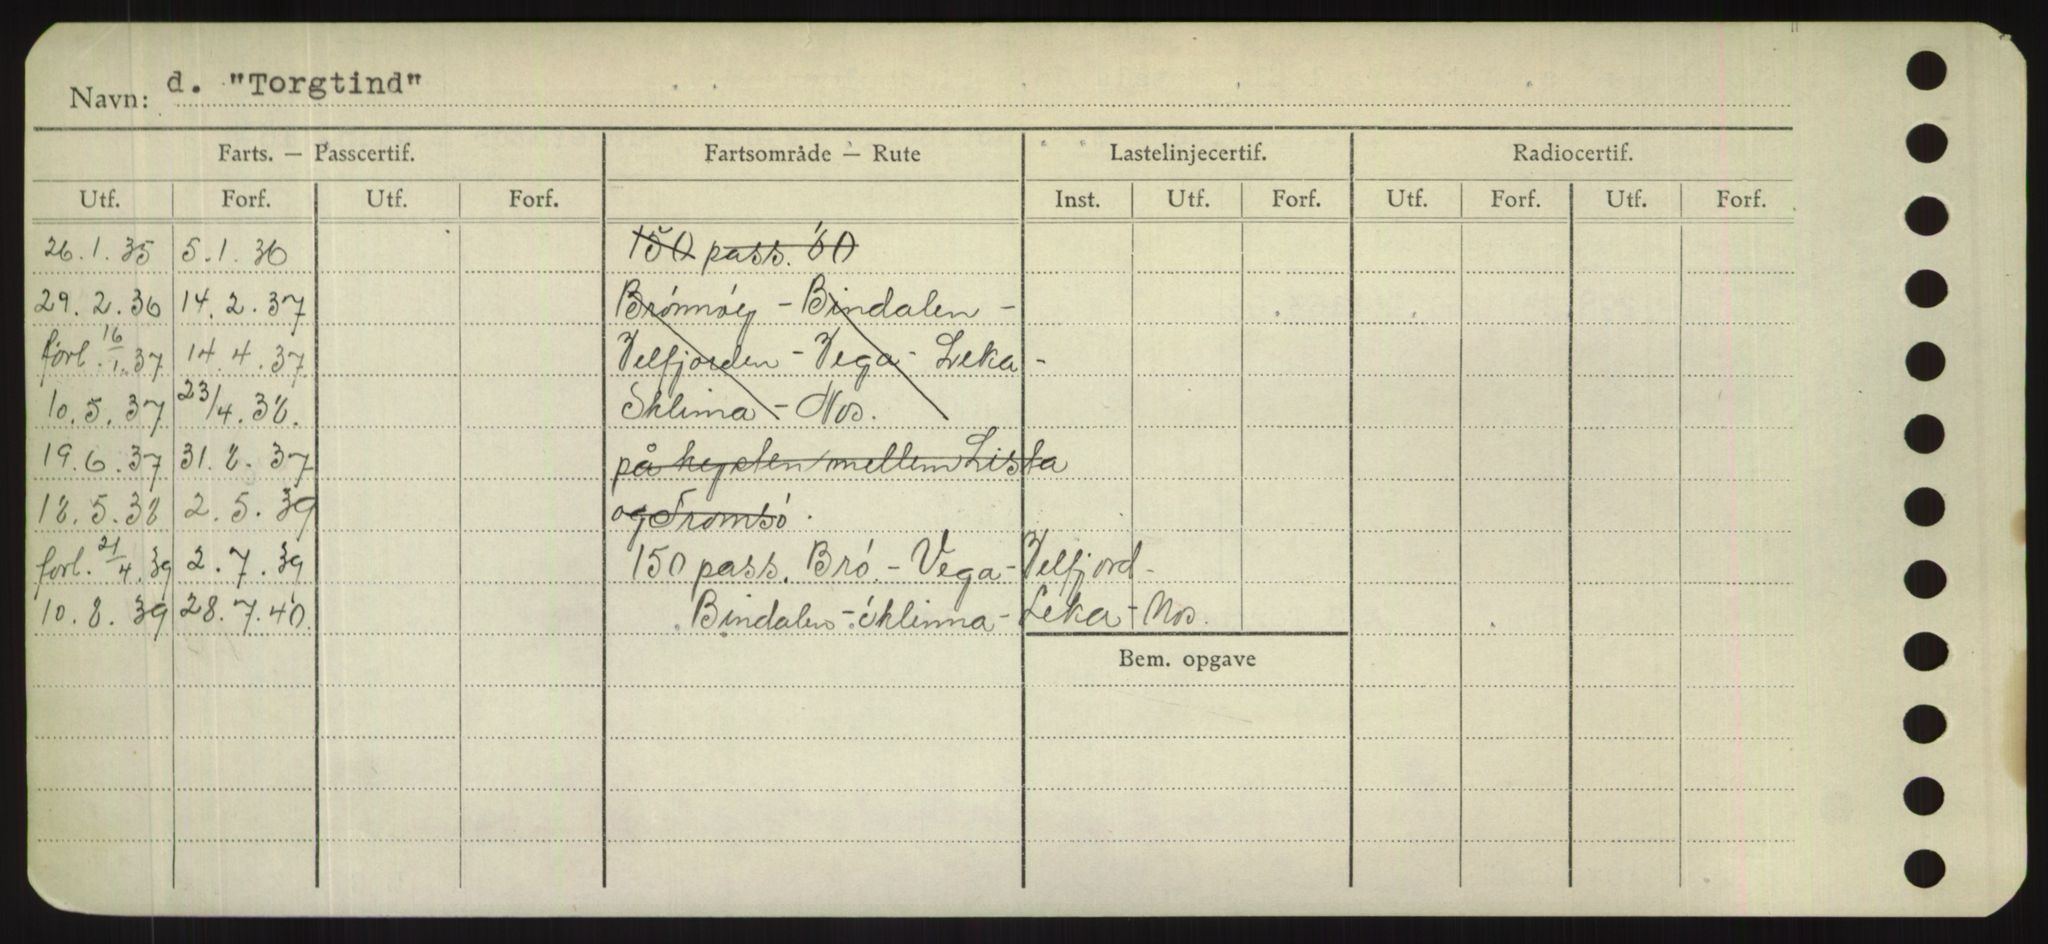 Navn: d. "Torgtind"
Farts. — Passcertif. Fartsområde — Rute Lastelinjecertif. Radiocertif.
Utf. Forf. Utf. Forf. Inst. Utf. Forf. Utf. Forf. Utf. Forf.
26.1.35 5.1.36 150 pass. 60
29.2.36 14.2.37 Brönnöy - Bindalen -
forl. 16/1.37 14.4.37 Velfjorden - Vega - Leka -
10.5.37 23/4.38. Sklinna - Nos.
19.6.37 31.8.37 på kysten mellem Lista
18.5.38 2.5.39 og Tromsö.
forl. 21/4.39 2.7.39 150 pass. Brö. - Vega - Velfjord -
10.8.39 28.7.40. Bindalen - Sklinna - Leka - Nos.
Bem. opgave